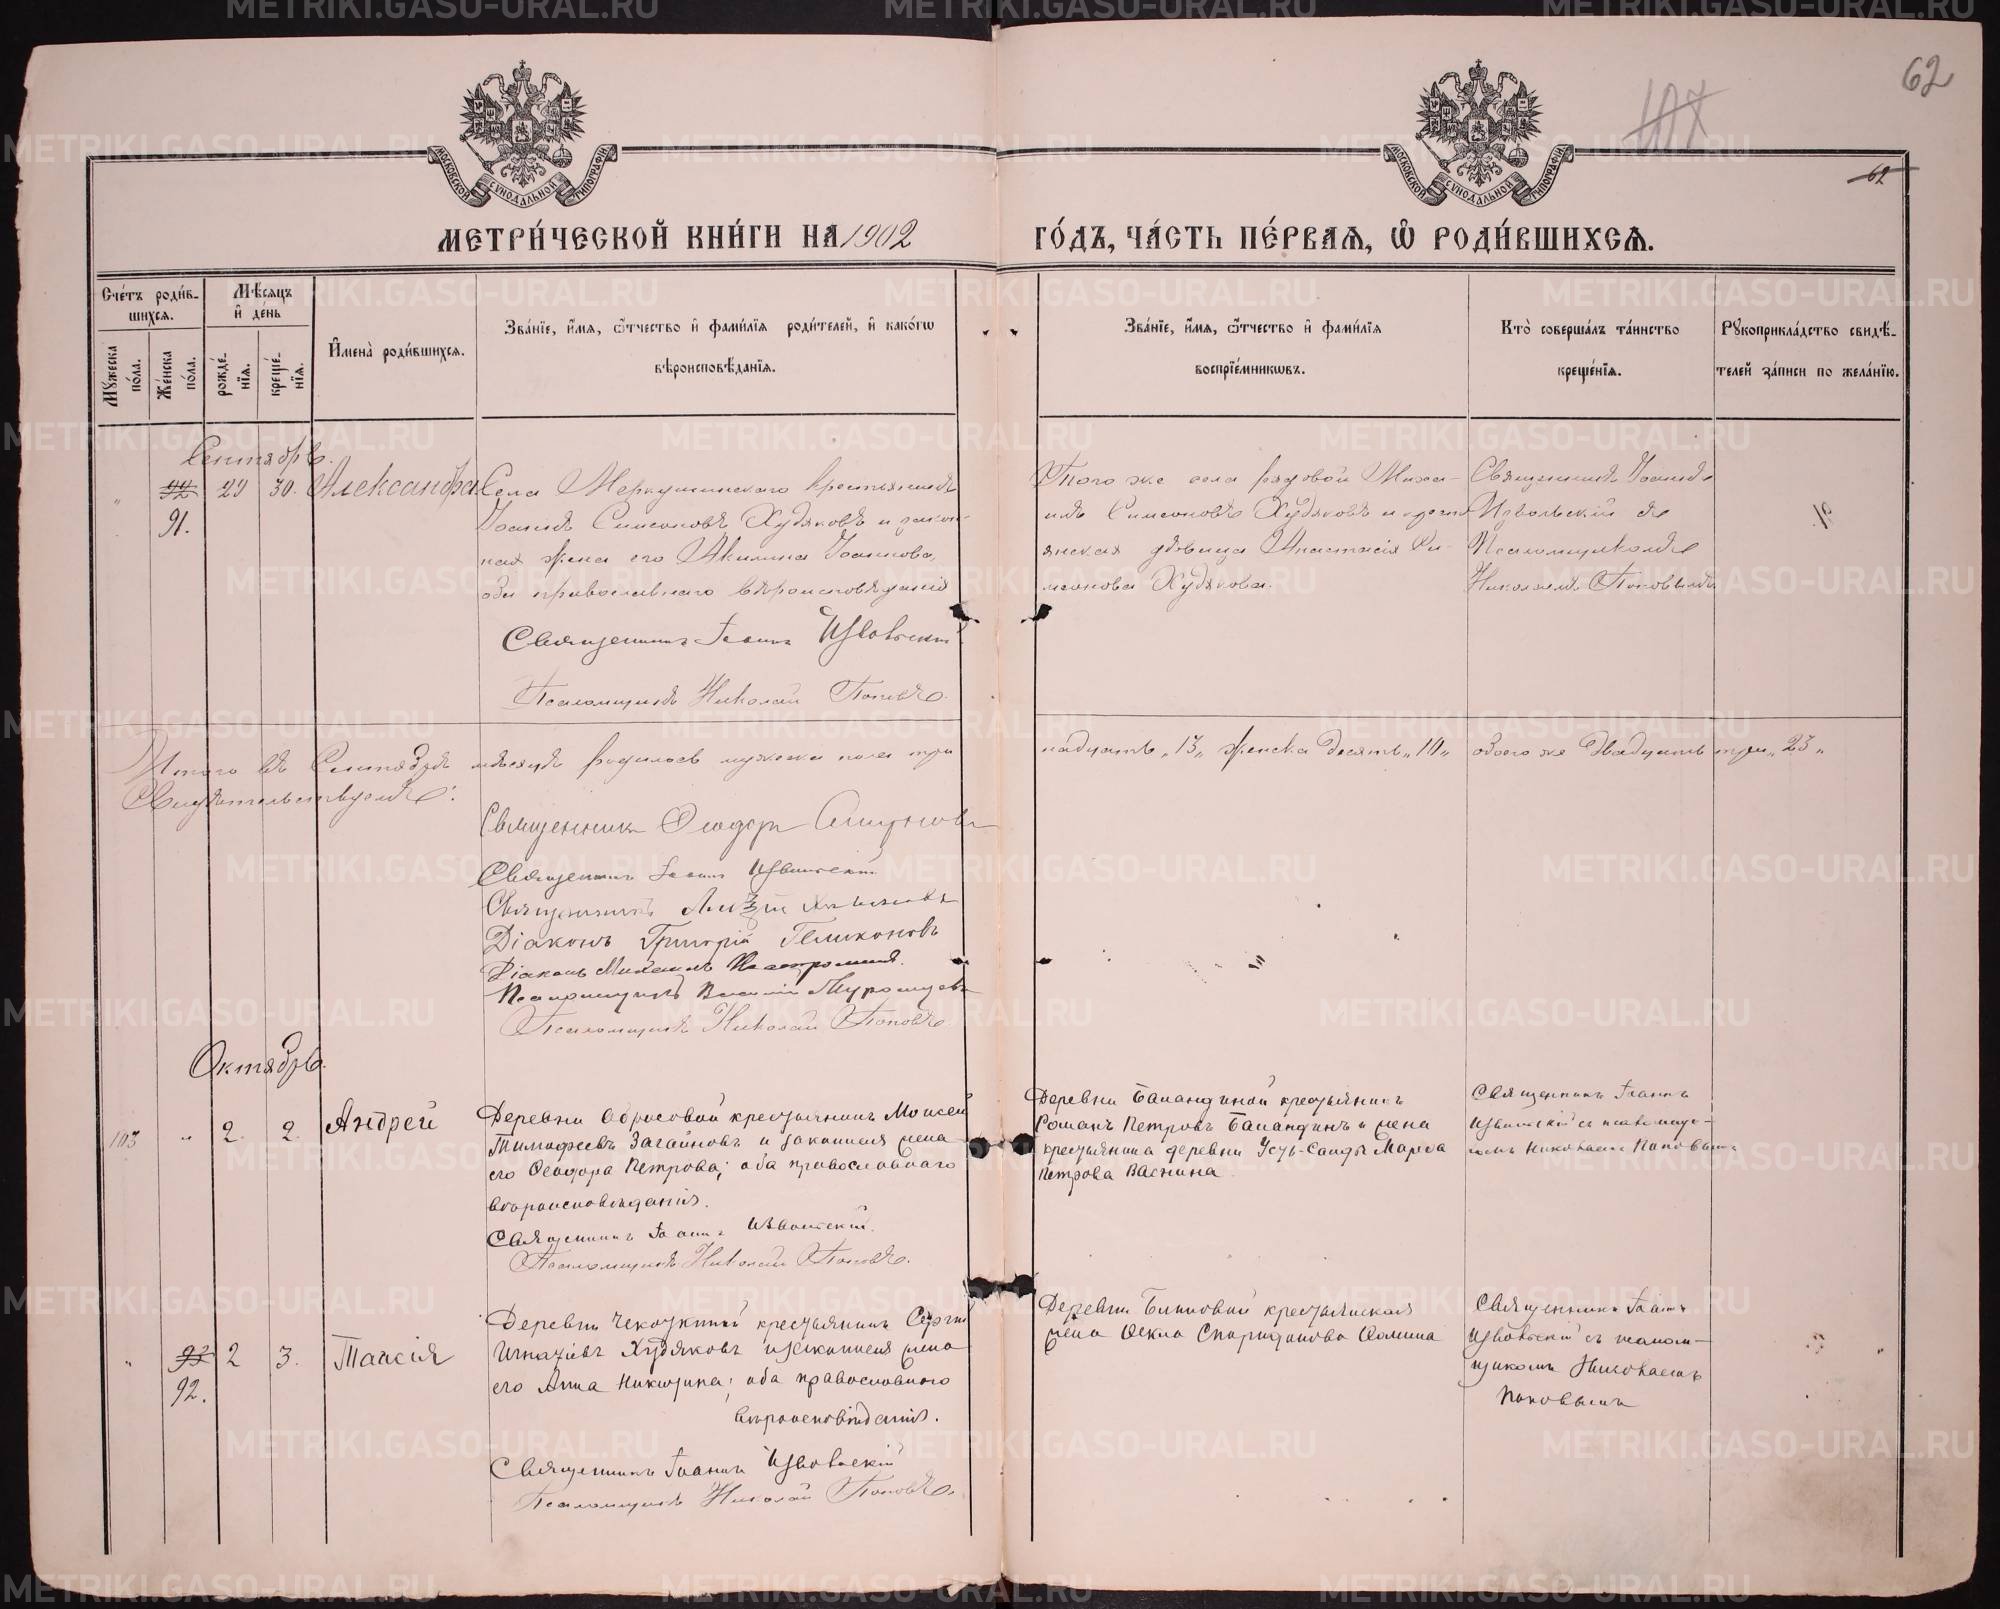 62
107
62
МОСКОВСКОЙ СУНОДАЛЬНОЙ ТИПОГРАФІИ
МОСКОВСКОЙ СУНОДАЛЬНОЙ ТИПОГРАФІИ
МЕТРИ́ЧЕСКОЙ КНИ́ГИ НА 1902 ГО́ДЪ, ЧА́СТЬ ПЕ́РВАѦ, Ѡ РОДИ́ВШИХСѦ.
Сче́тъ роди́в-
шихсѧ.
Мꙋ́жеска по́ла.
Же́нска по́ла.
Мѣ́сѧцъ и де́нь
рожде́-нїѧ.
креще́-нїѧ.
Имена̀ роди́вшихсѧ.
Зва́нїе, и́мѧ, ѻ́тчество и фами́лїѧ роди́телей, и како́гѡ
вѣроисповѣ́данїѧ.
Зва́нїе, и́мѧ, ѻ́тчество и фами́лїѧ
воспрїе́мникѡвъ.
Кто̀ соверша́лъ та́инство
креще́нїѧ.
Рꙋкоприкла́дство свидѣ́-
телей за́писи по жела́нїю.
Сентябрь.
92 29 30. Александра
91.
Села Меркушинскаго крестьянинъ
Іоаннъ Симеоновъ Худяковъ и закон-
ная жена его Акилина Іоаннова,
оба православнаго вѣроисповѣданія
Священникъ Іоаннъ Изволь­скій
Псаломщикъ Николай Поповъ.
Того же села рядовой Миха-
илъ Симеоновъ Худяковъ и кресть
янская вдовица Анастасія Си-
меонова Худякова.
Священникъ Іоаннъ
Извольскій съ
Псаломщикомъ
Николаемъ Поповымъ
91.
Итого въ Сентябрѣ мѣсяцѣ родилось мужеска пола три надцать „13„ женска десять „10„ обоего же двадцать три „23„
Свидѣтельствуемъ:
Священникъ Ѳеодоръ Смирновъ
Священникъ Іоаннъ Извольскій
Священникъ
Діаконъ Григорій
Діаконъ Михаилъ
Псаломщикъ Василій
Псаломщикъ Николай Поповъ.
Октябрь.
103 „ 2. 2. Андрей
Деревни Обросовой крестьянинъ Моисей
Тимофеевъ Загайновъ и законная жена
его Ѳеодора Петрова; оба православнаго
вѣроисповѣданія.
Священникъ Іоаннъ Извольскій.
Псаломщикъ Николай Поповъ.
Деревни Баландиной крестьянинъ
Романъ Петровъ Баландинъ и жена
крестьянина деревни Усть-Салды Марѳа
Петрова Васнина.
Священникъ Іоаннъ
Извольскій съ псаломщи-
комъ Николаемъ Поповымъ
„ 93 2 3. Таисія
92.
крестьянинъ Сергій
Игнатіевъ Худяковъ и законная жена
его Анна Никитина; оба православного
вѣроисповѣданія.
Священникъ Іоаннъ Извольскій
Псаломщикъ Николай Поповъ.
крестьянская
жена Ѳекла Спиридонова Ѳомина
Священникъ Іоаннъ
Извольскій съ псалом-
щикомъ Николаемъ
Поповымъ
METRIKI.GASO-URAL.RU